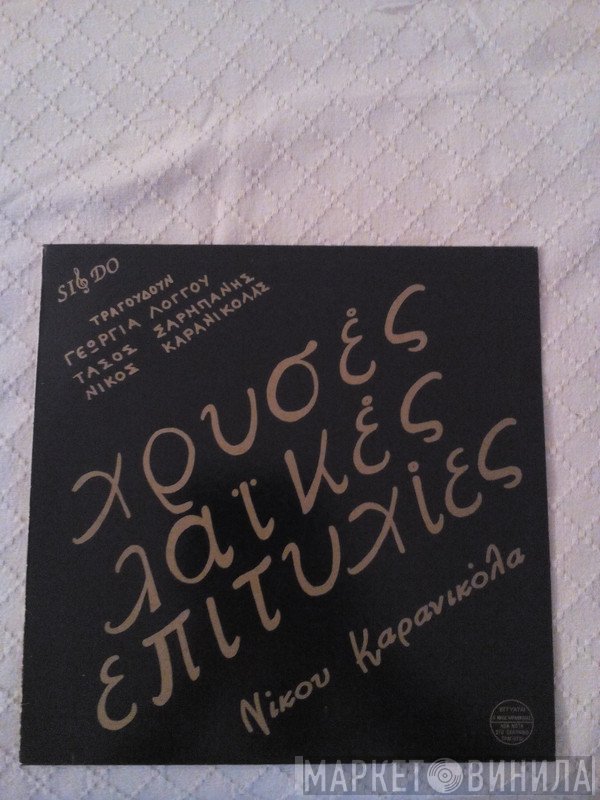 SI DO
ΤΡΑΓΟΥΔΟΥΝ
ΓΕΩΡΓΙΑ ΛΟΓΓΟΥ
ΤΑΣΟΣ ΣΑΡΜΠΑΝΗΣ
ΝΙΚΟΣ ΚΑΡΑΝΙΚΟΛΑΣ
χρυσές
λαϊκές
επιτυχίες
Νίκου Καρανικόλα
ΕΓΓΥΑΤΑΙ
ΜΑРКЕТ ВИНИЛА